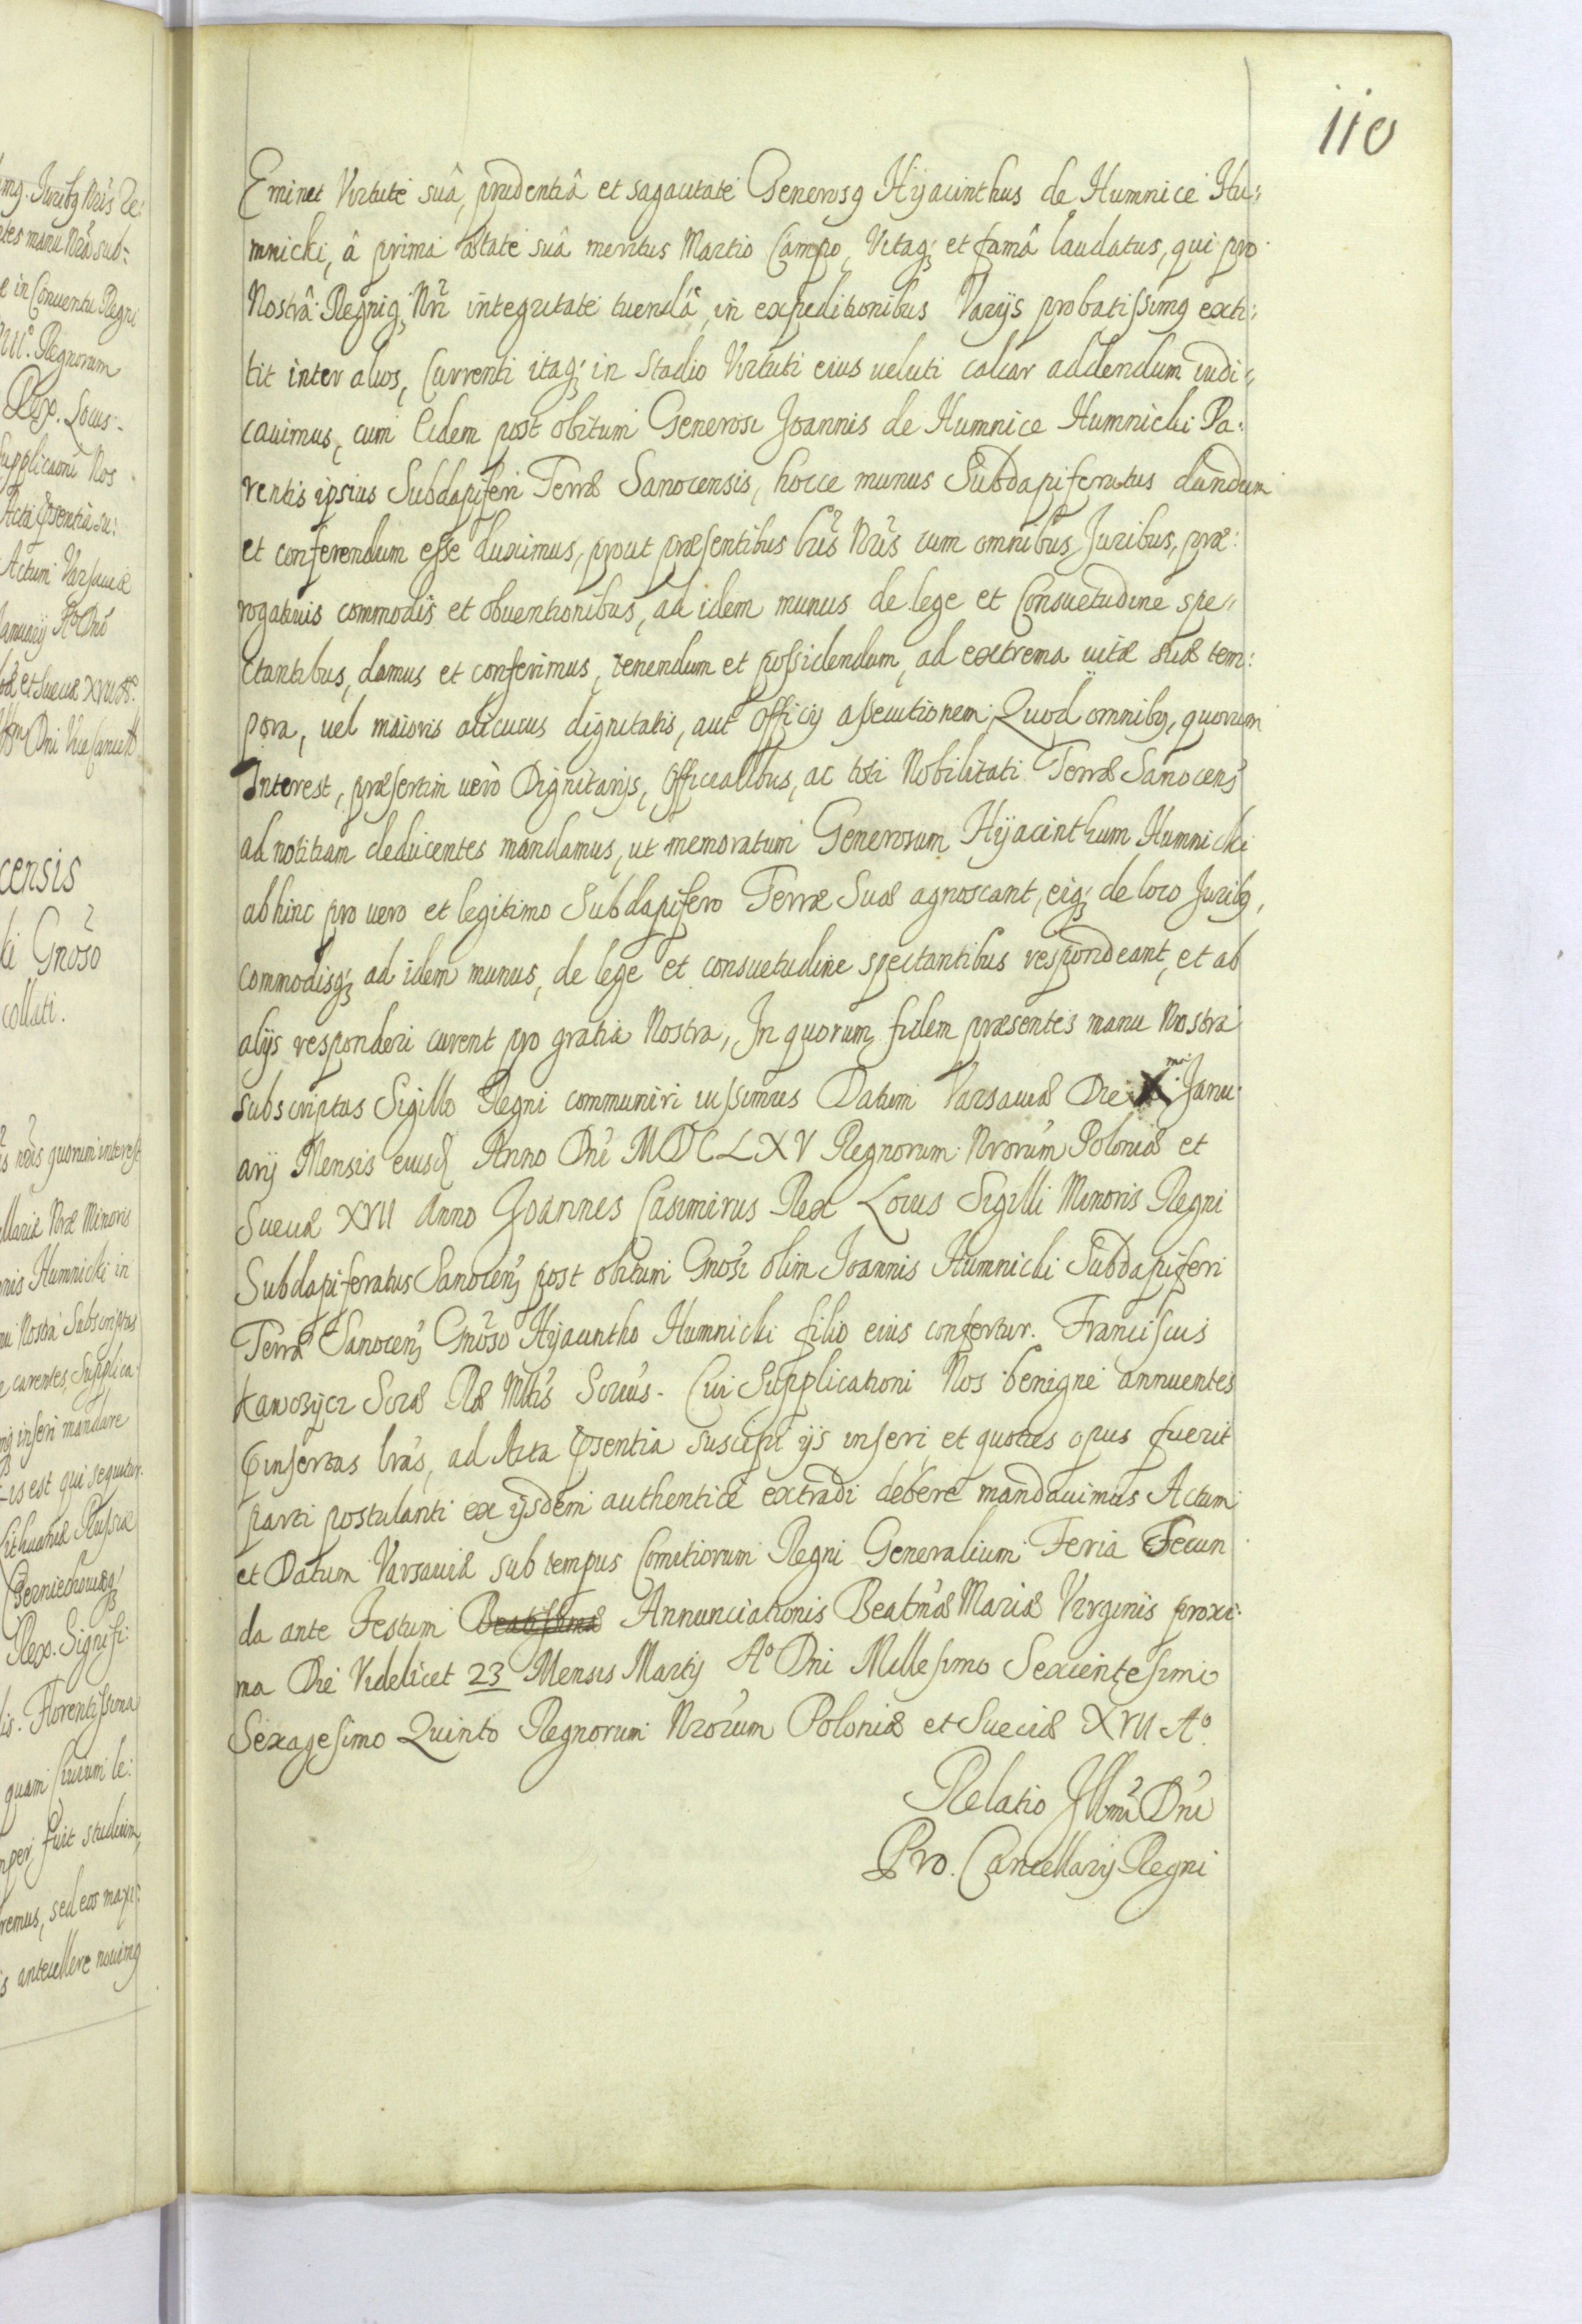 110
Eminet Virtute suâ, prudentiâ et sagacitate Generosq Hyacinthus de Humnice Hu:
mnicki, â prima ætate suâ meritus Martio Campo, Vitaq; et famâ laudatus, qui pro
Nostrâ Regniq; Nri integritate tuendâ, in expeditionibus Varijs probatissimq exti:
tit inter alios, Currenti itaq; in Stadio Virtuti eius veluti calcar addendum iudi:
cauimus, cum Eidem post obitum Generosi Joannis de Humnice Humnicki Pa:
rentis ipsius Subdapiferi Terræ Sanocensis, hocce munus Subdapiferatus dandum
et conferendum esse duximus, prout præsentibus lris Nris cum omnibus Juribus, præ:
rogatiuis commodis et obuentionibus, ad idem munus de lege et Consuetudine spe:
ctantibus, damus et conferimus, tenendum et possidendum, ad extrema uitæ suæ tem:
pora, uel maioris alicuius dignitatis, aut Officij assecutionem; Quod omnibq, quorum
Interest, præsertim uerò Dignitarijs, Officialibus, ac toti Nobilitati Terræ Sanocens
ad notitiam deducentes mandamus, ut memoratum Generosum Hyacinthum Humnicki
abhinc pro uero et legitimo Subdapifero Terræ Suæ agnoscant, eiq; de loco Juribq,
commodisq; ad idem munus, de lege et consuetudine spectantibus respondeant, et ab
alijs responderi curent pro gratia Nostra, In quorum fidem præsentes manu Nostra
subscriptas Sigillo Regni communiri iussimus Datum Varsauiæ Die X ma Janu:
arij Mensis eiusd Anno Dni MDCLXV Regnorum Nrorum Poloniæ et
Sueciæ XVII Anno Joannes Casimirus Rex Locus Sigilli Minoris Regni
Subdapiferatus Sanocens post obitum Gnosi olim Joannis Humnicki Subdapiferi
Terræ Sanocens Gnoso Hyacintho Humnicki filio eius confertur. Franciscus
Sctæ Ræ Mttis Scrius. Cui Supplicationi Nos benigne annuentes
insertas lras, ad Acta psentia suscipi ijs inseri, et quoties opus fuerit
parti postulanti ex ijsdem authentice extradi debere mandauimus Actum
et Datum Varsauiæ sub tempus Comitiorum Regni Generalium Feria Secun
da ante Festum Beatissimæ Annunciationis Beatmæ Mariæ Virginis proxi:
ma Die Videlicet 23 Mensis Martij Ao Dni Millesimo Sexcentesimo
Sexagesimo Quinto Regnorum Nrorum Poloniæ et Sueciæ XVII Ao.
Relatio Illmi Dni
Pro. Cancellarij Regni